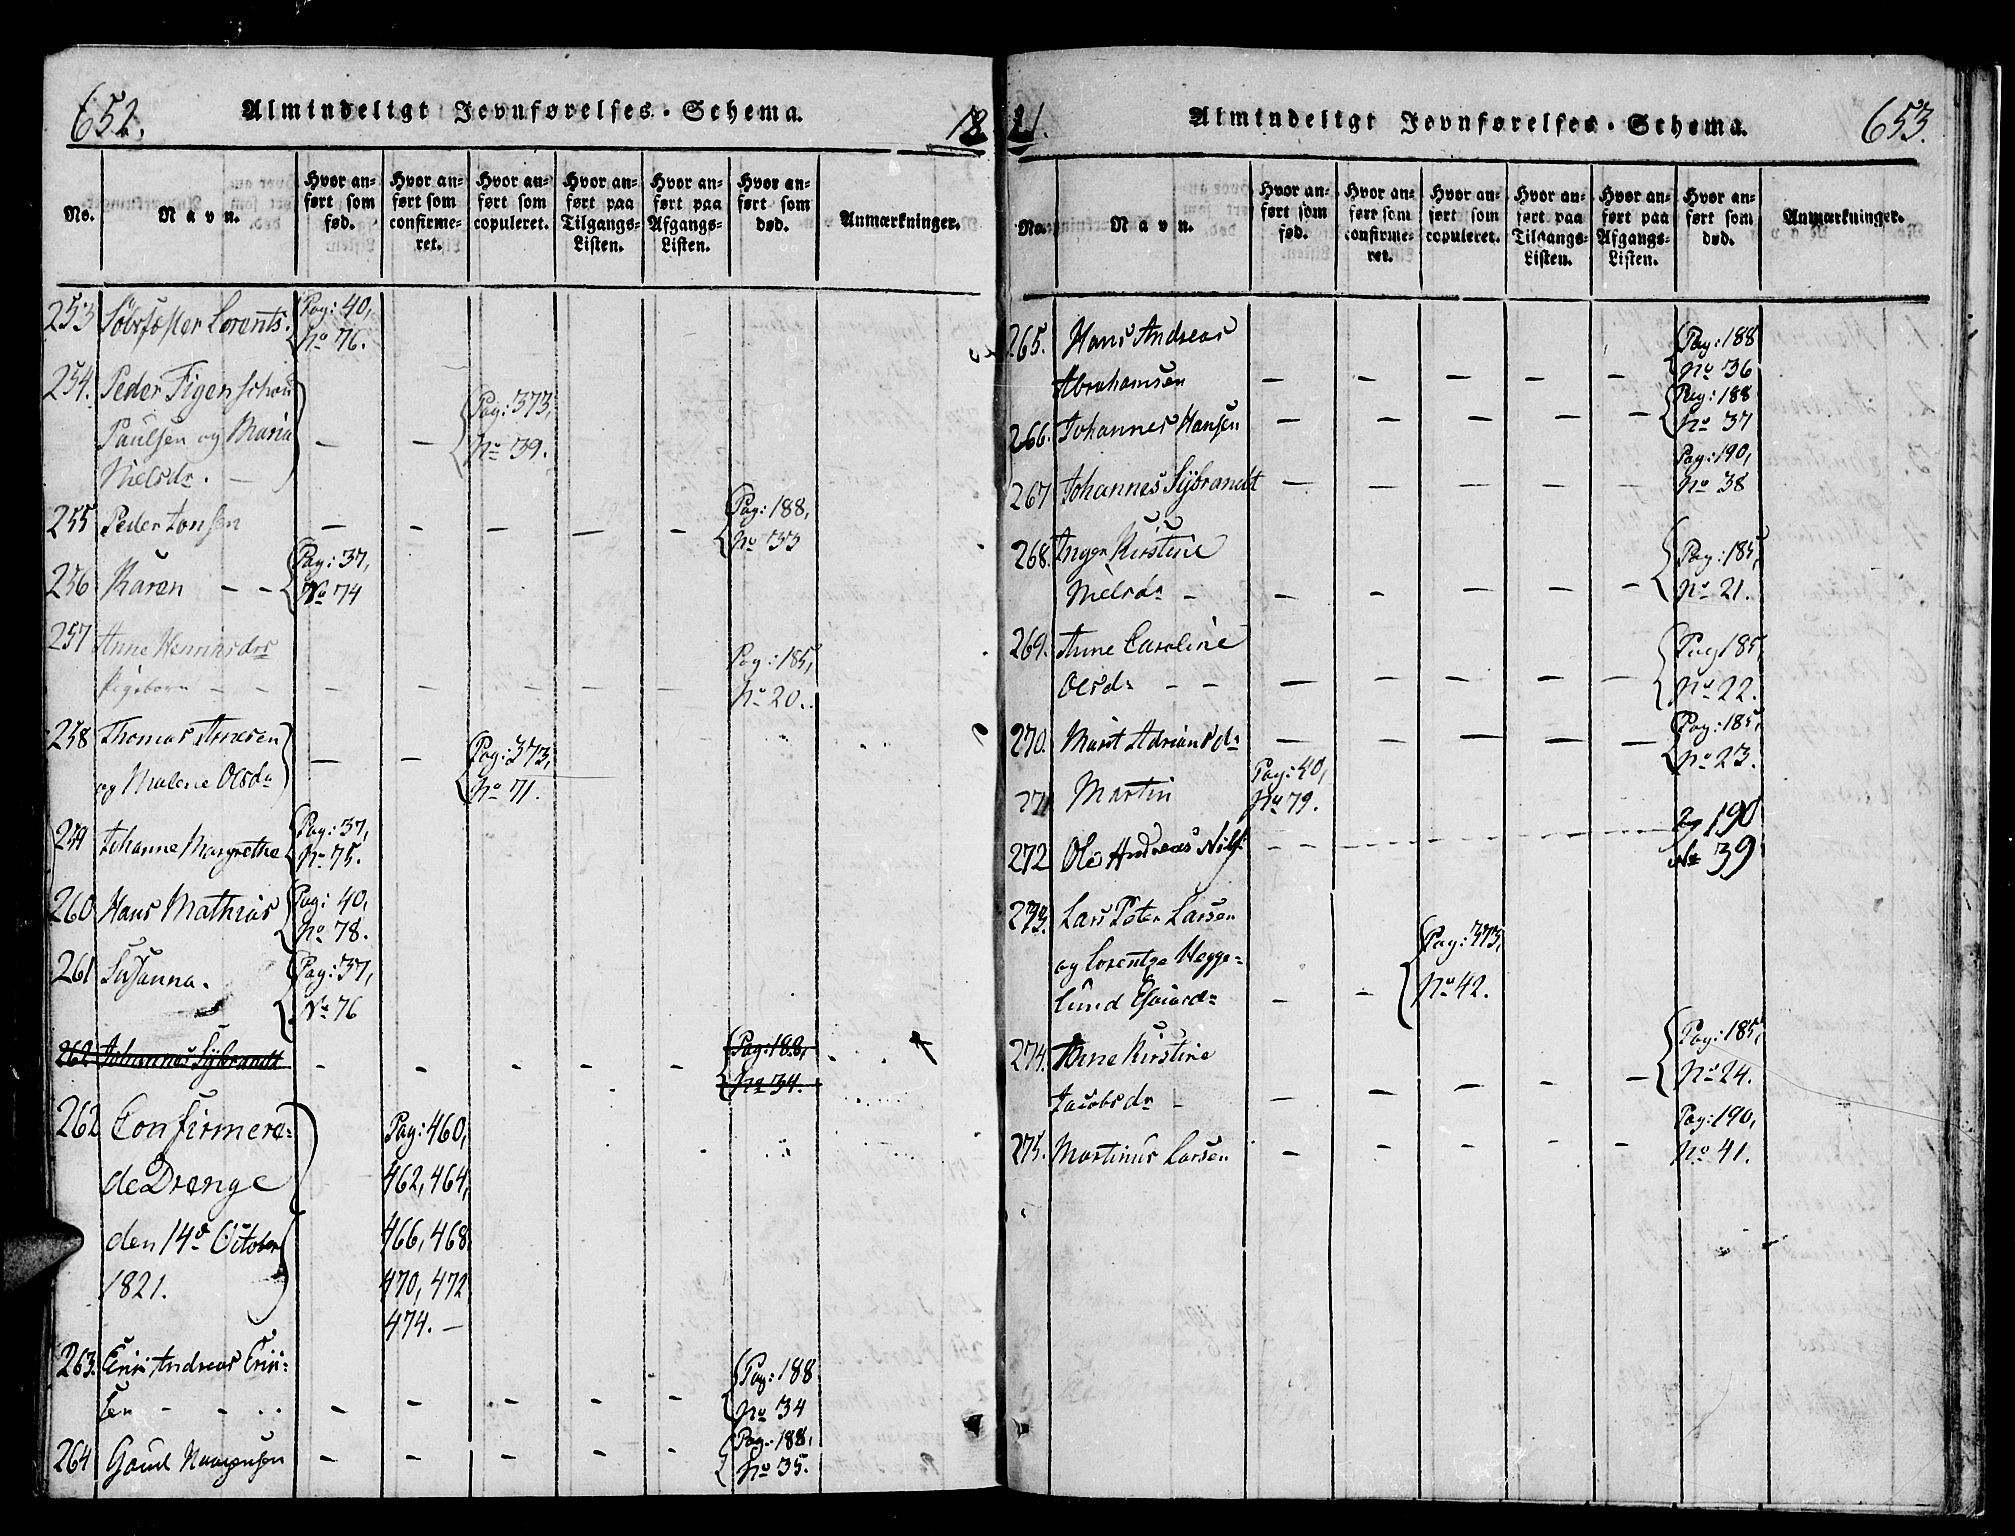 652.
Almindeligt Jevnførelses-Schema.
18
No.
Navn.
Hvor anført som fød.
Hvor anført som confirmeret.
Hvor anført som copuleret.
Hvor anført paa Tilgangs-Listen.
Hvor anført paa Afgangs-Listen.
Hvor anført som død.
Anmærkninger.
253 Lorents. Pag: 40,
No 76.
254. Peder Figenschou
Paulsen og Maria — — Pag: 373,
Nielsdr. — No 39.
255 Peder Jonsen — — — — — Pag: 188,
No 33
256 Karen — — Pag: 37,
No 74
257 Anne Henriksdr
Pigebarn — — — — — — — Pag: 185,
No 20.
258 Thomas Arnesen
og Malene Olsdr — — Pag: 373,
No 71.
259 Johanne Margrethe Pag: 37,
No 75.
260 Hans Mathias Pag: 40,
No 78.
261 Susanna. Pag: 37,
No 76
262 Johannes Sybrandt — — — — Pag: 188,
No 34.
262 Confirmere-
de Drenge
den 14de October
1821.
Pag: 460,
462, 464,
466, 468,
470, 472
474. —
263. Erik Andreas Erik-
sen — — — — — — Pag: 188
No 34
264 — — — — — Pag: 188,
No 35.
21.
Almindeligt Jevnførelses-Schema.
653.
No.
Navn.
Hvor anført som fød.
Hvor anført som confirmeret.
Hvor anført som copuleret.
Hvor anført paa Tilgangs-Listen.
Hvor anført paa Afgangs-Listen.
Hvor anført som død.
Anmærkninger.
265. Hans Andreas
Abrahamsen — — — — Pag: 188
No 36
266. Johannes Hansen — — — — — Pag: 188
No 37
267 Johannes Sybrandt — — — — — Pag: 190,
No 38
268. Inger Kirstine
Nielsdr — — — — — — Pag: 185,
No 21.
269. Anne Caroline
Olsdr — — — — — — — Pag 185,
No 22.
270. Marit Adriansdr — — — — — Pag: 185,
No 23.
271 Martin Pag: 40,
No 79.
272 Ole Andreas Nils: — — pg 190
No 39
273. Lars Peter Larsen
og Lorentze Hegge-
lund Esaiasdr — — Pag: 373,
No 42.
274. Anne Kirstine
Jacobsdr — — — — — — Pag: 185,
No 24.
275. Martinus Larsen — — — — — Pag: 190,
No 41.